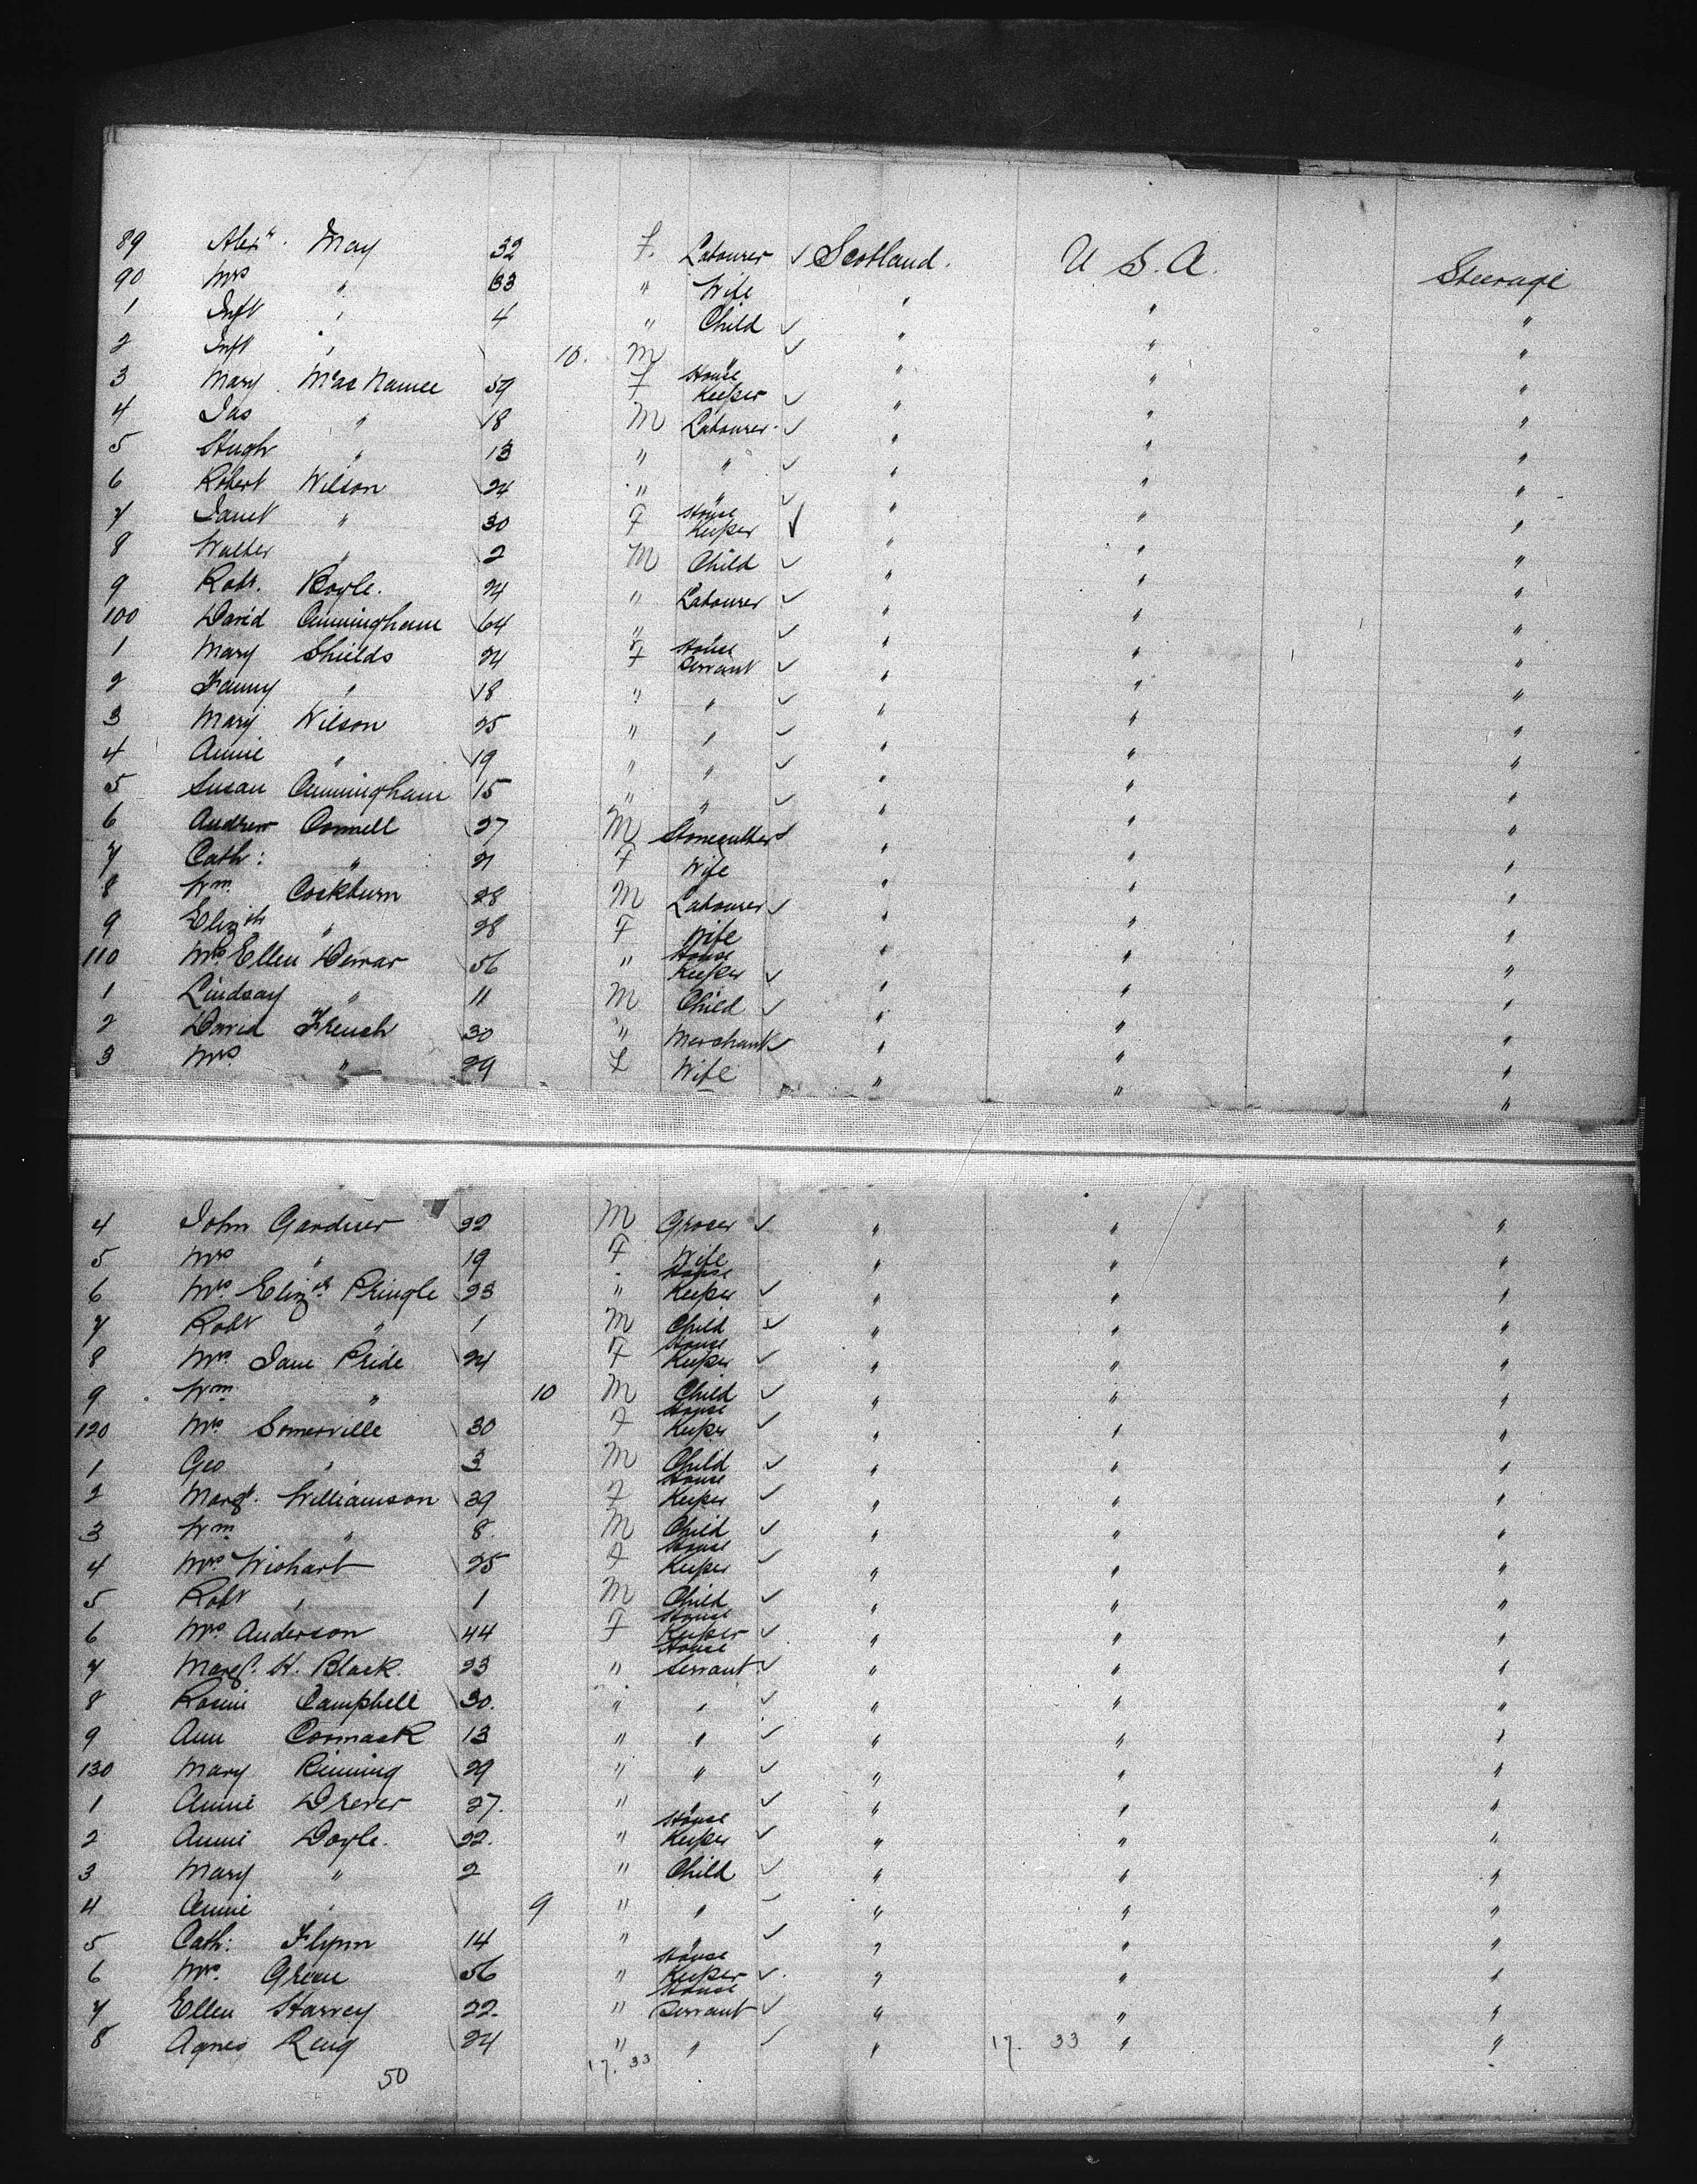 89 Alexr. May 32 F. Labourer ✓ Scotland. U.S.A. Steerage
90 Mrs " 33 " Wife " " "
1 Inft " 4 " Child ✓ " " "
2 Inft " 10. M " ✓ " " "
3 Mary MacNamee 59 F House Keeper ✓ " " "
4 Jas " 18 M Labourer ✓ " " "
5 Hugh " 13 " " ✓ " " "
6 Robert Wilson 24 " " ✓ " " "
7 Janet " 30 F House Keeper ✓ " " "
8 Walter " 2 M Child ✓ " " "
9 Robt. Boyle. 24 " Labourer ✓ " " "
100 David Cunningham 64 " " ✓ " " "
1 Mary Shields 24 F House Servant ✓ " " "
2 Fanny " 18 " " ✓ " " "
3 Mary Wilson 25 " " ✓ " " "
4 Annie " 19 " " ✓ " " "
5 Susan Cunningham 15 " " ✓ " " "
6 Andrew Connell 27 M Stonecutter ✓ " " "
7 Cath: " 21 F Wife " " "
8 Wm. Cockburn 28 M Labourer ✓ " " "
9 Elizth " 28 F Wife " " "
110 Mrs. Ellen Dewar 56 " House Keeper ✓ " " "
1 Lindsay " 11 M Child ✓ " " "
2 David French 30 " Merchant ✓ " " "
3 Mrs. " 29 F Wife " " "
4 John Gardner 22 M Grocer ✓ " " "
5 Mrs " 19 F Wife " " "
6 Mrs. Elizth Pringle 23 " House Keeper ✓ " " "
7 Robt " 1 M Child ✓ " " "
8 Mrs. Jane Pride 24 F House Keeper ✓ " " "
9 Wm. " 10 M Child ✓ " " "
120 Mrs. Somerville 30 F House Keeper ✓ " " "
1 Geo " 3 M Child ✓ " " "
2 Margt. Williamson 39 F House Keeper ✓ " " "
3 Wm. " 8. M Child ✓ " " "
4 Mrs Wishart 25 F House Keeper ✓ " " "
5 Robt " 1 M Child ✓ " " "
6 Mrs Anderson 44 F House Keeper ✓ " " "
7 Margt. H. Black. 23 " House Servant ✓ " " "
8 Rosini Campbell 30. " " ✓ " " "
9 Ann Cormack 13 " " ✓ " " "
130 Mary Rinning 29 " " ✓ " " "
1 Annie Drever 27. " " ✓ " " "
2 Annie Doyle. 22. " House Keeper ✓ " " "
3 Mary " 2 " Child ✓ " " "
4 Annie " 9 " " ✓ " " "
5 Cath: Flynn 14 " " ✓ " " "
6 Mrs. Green 56 " House Keeper ✓ " " "
7 Ellen Harvey 22. " House Servant ✓ " " "
8 Agnes Reig 24 " " ✓ " 17. 33 " "
50 17. 33